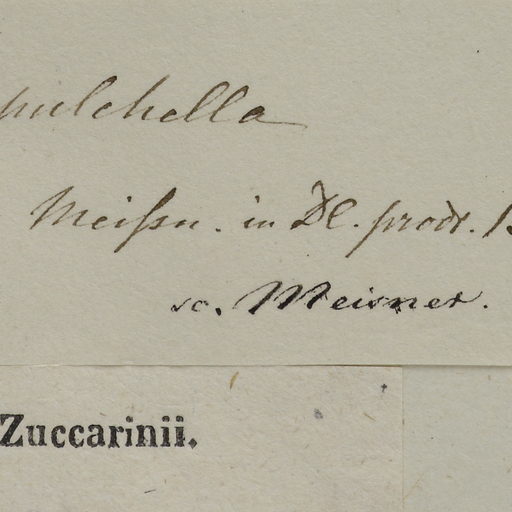 pulchella
Meißn. in DC. prodr. 1
sc. Meisner.
Zuccarinii.